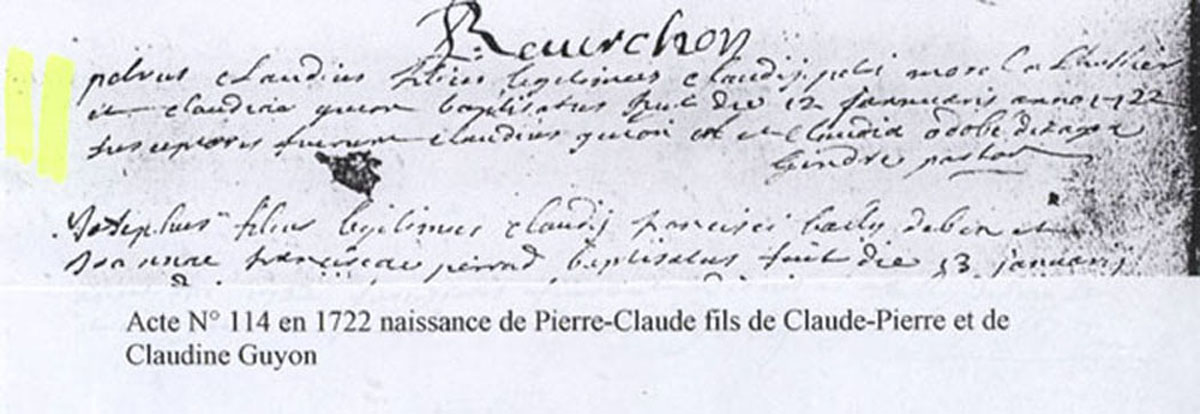 Reuerchon
petrus claudius filius legitimus claudij petri morel a Lhuissier
et claudiae guion baptisatus fuit die 12 januarii anno 1722
susceptores fuerunt claudius guion et claudia odobe
Gendre pastor
Josephus filius legitimus claudij francisci bailly et
Joannae franciscae baptisatus fuit die 13 januarij
Acte N° 114 en 1722 naissance de Pierre-Claude fils de Claude-Pierre et de
Claudine Guyon